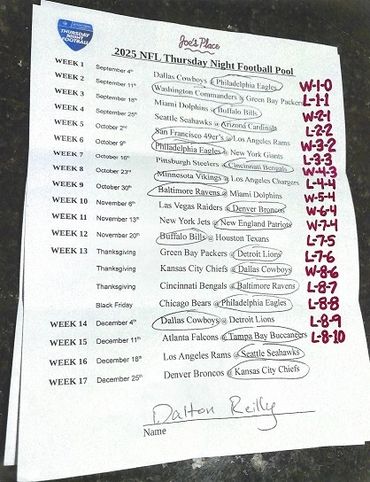 THURSDAY NIGHT FOOTBALL
Joe's Place
2025 NFL Thursday Night Football Pool
WEEK 1 September 4th Dallas Cowboys @ Philadelphia Eagles W-1-0
WEEK 2 September 11th Washington Commanders @ Green Bay Packers L-1-1
WEEK 3 September 18th Miami Dolphins @ Buffalo Bills W-2-1
WEEK 4 September 25th Seattle Seahawks @ Arizona Cardinals L-2-2
WEEK 5 October 2nd San Francisco 49er's @ Los Angeles Rams W-3-2
WEEK 6 October 9th Philadelphia Eagles @ New York Giants L-3-3
WEEK 7 October 16th Pittsburgh Steelers @ Cincinnati Bengals W-4-3
WEEK 8 October 23rd Minnesota Vikings @ Los Angeles Chargers L-4-4
WEEK 9 October 30th Baltimore Ravens @ Miami Dolphins W-5-4
WEEK 10 November 6th Las Vegas Raiders @ Denver Broncos W-6-4
WEEK 11 November 13th New York Jets @ New England Patriots W-7-4
WEEK 12 November 20th Buffalo Bills @ Houston Texans L-7-5
WEEK 13 Thanksgiving Green Bay Packers @ Detroit Lions L-7-6
Thanksgiving Kansas City Chiefs @ Dallas Cowboys W-8-6
Thanksgiving Cincinnati Bengals @ Baltimore Ravens L-8-7
Black Friday Chicago Bears @ Philadelphia Eagles L-8-8
WEEK 14 December 4th Dallas Cowboys @ Detroit Lions L-8-9
WEEK 15 December 11th Atlanta Falcons @ Tampa Bay Buccaneers L-8-10
WEEK 16 December 18th Los Angeles Rams @ Seattle Seahawks
WEEK 17 December 25th Denver Broncos @ Kansas City Chiefs
Dalton Reilly
Name